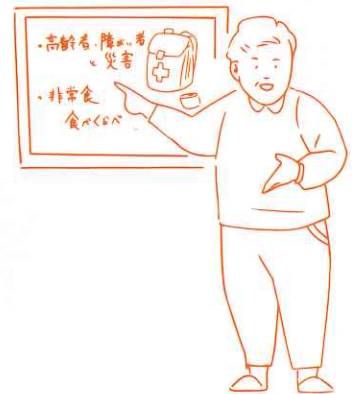 ・高齢者・障がい者
と災害
・非常食
食べくらべ